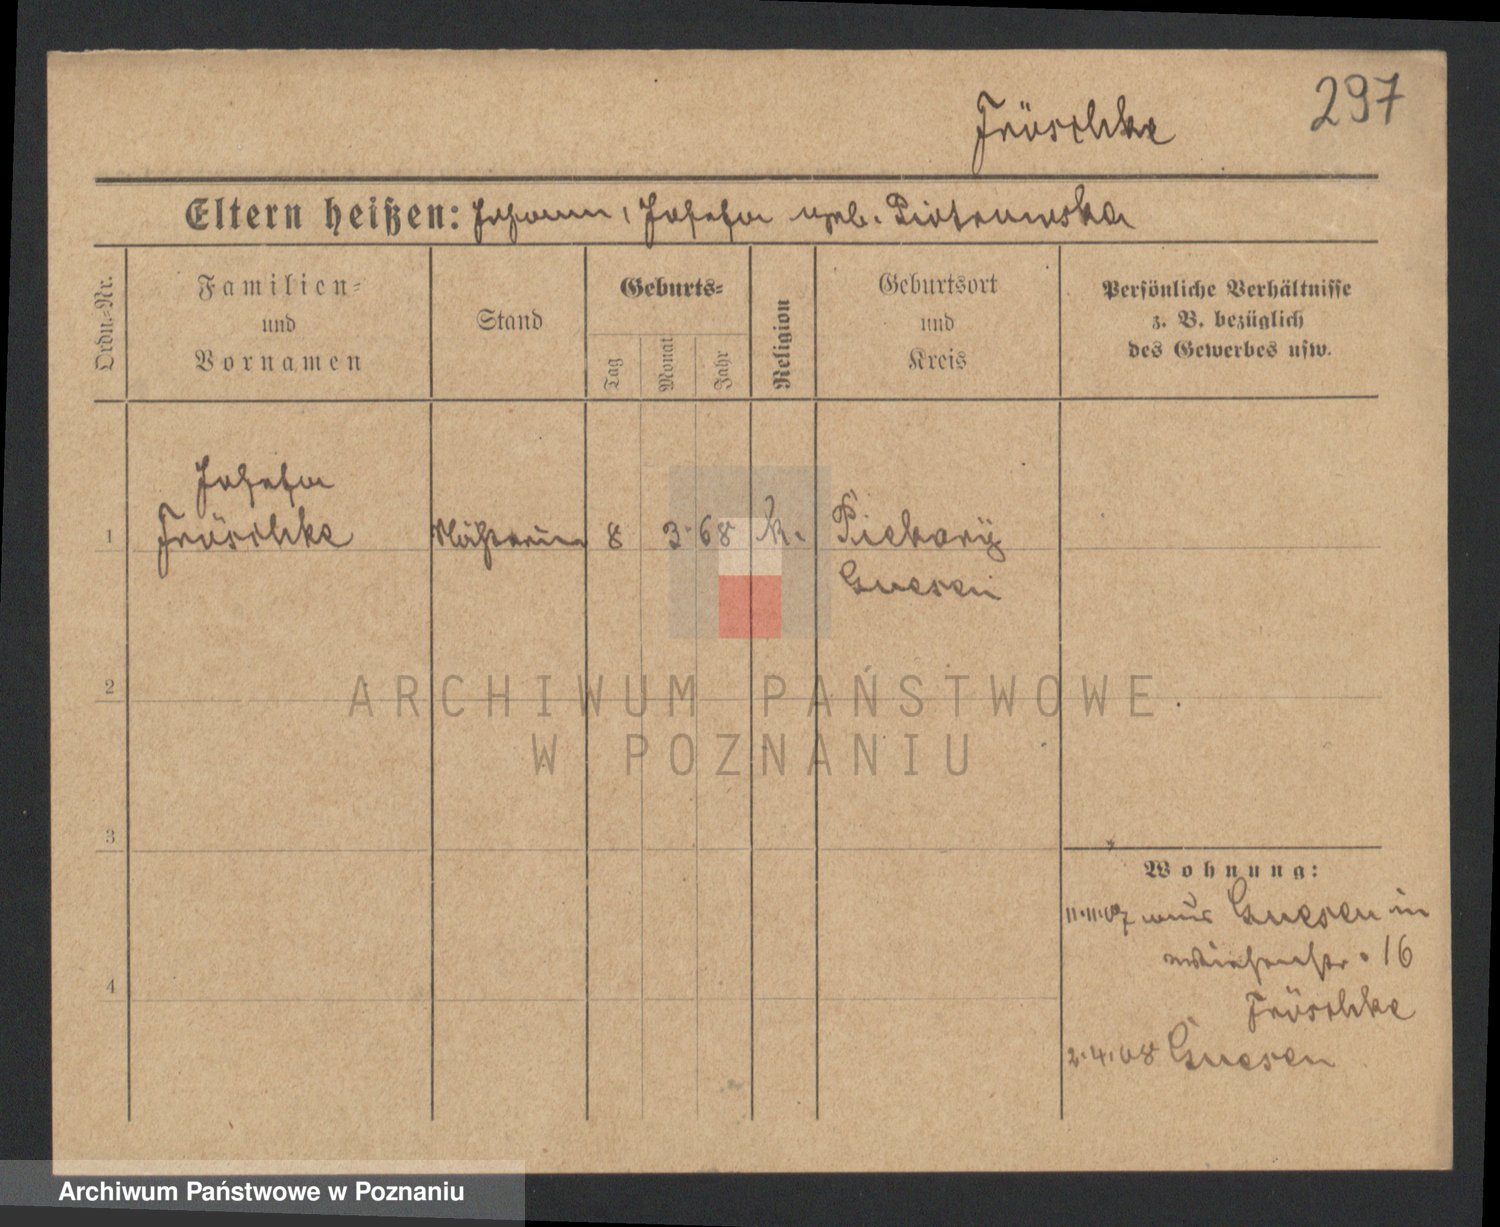 297
Fröschke
Eltern heißen: Johann, Josefa geb. Piotrowska
Ordn.-Nr.
Familien-
und
Vornamen
Stand
Geburts-
Tag
Monat
Jahr
Religion
Geburtsort
und
Kreis
Persönliche Verhältnisse
z. B. bezüglich
des Gewerbes usw.
Josefa
1 Fröschke Nähterin 8 3. 68 k. Piekary
Gnesen
2
ARCHIWUM PAŃSTWOWE
W POZNANIU
3
Wohnung:
11.11.07 aus Gnesen in
16
Fröschke
4
2.4.08 Gnesen
Archiwum Państwowe w Poznaniu